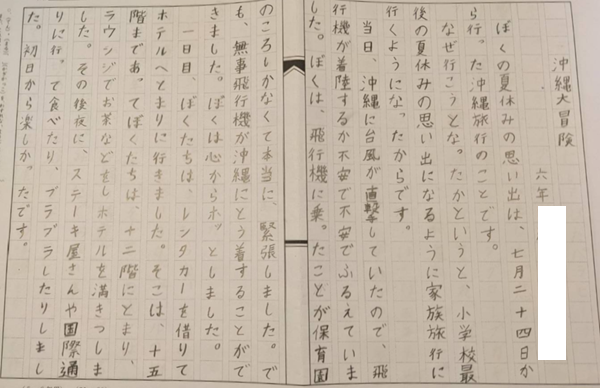 沖縄大冒険
六年
ぼくの夏休みの思い出は、七月二十四日か
ら行った沖縄旅行のことです。
なぜ行こうとなったかというと、小学校最
後の夏休みの思い出になるように家族旅行に
行くようになったからです。
当日、沖縄に台風が直撃していたので、飛
行機が着陸するか不安で不安でふるえていま
した。ぼくは、飛行機に乗ったことが保育園
のころしかなくて本当に、緊張しました。で
も、無事飛行機が沖縄にとう着することがで
きました。ぼくは心からホッとしました。
一日目、ぼくたちは、レンタカーを借りて
ホテルへとまりに行きました。そこは、十五
階まであってぼくたちは、十二階にとまり、
ラウンジでお茶などをしホテルを満きつしま
した。その後夜に、ステーキ屋さんや国際通
りに行って食べたり、ブラブラしたりしまし
た。初日から楽しかったです。